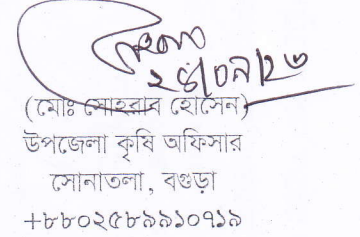 (মোঃ সোহরাব হোসেন)
উপজেলা কৃষি অফিসার
সোনাতলা, বগুড়া
+৮৮০২৫৮৯৯১০৭১৯